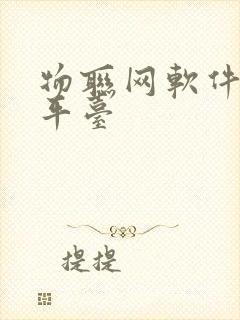 物聯网軟件
平臺
提提